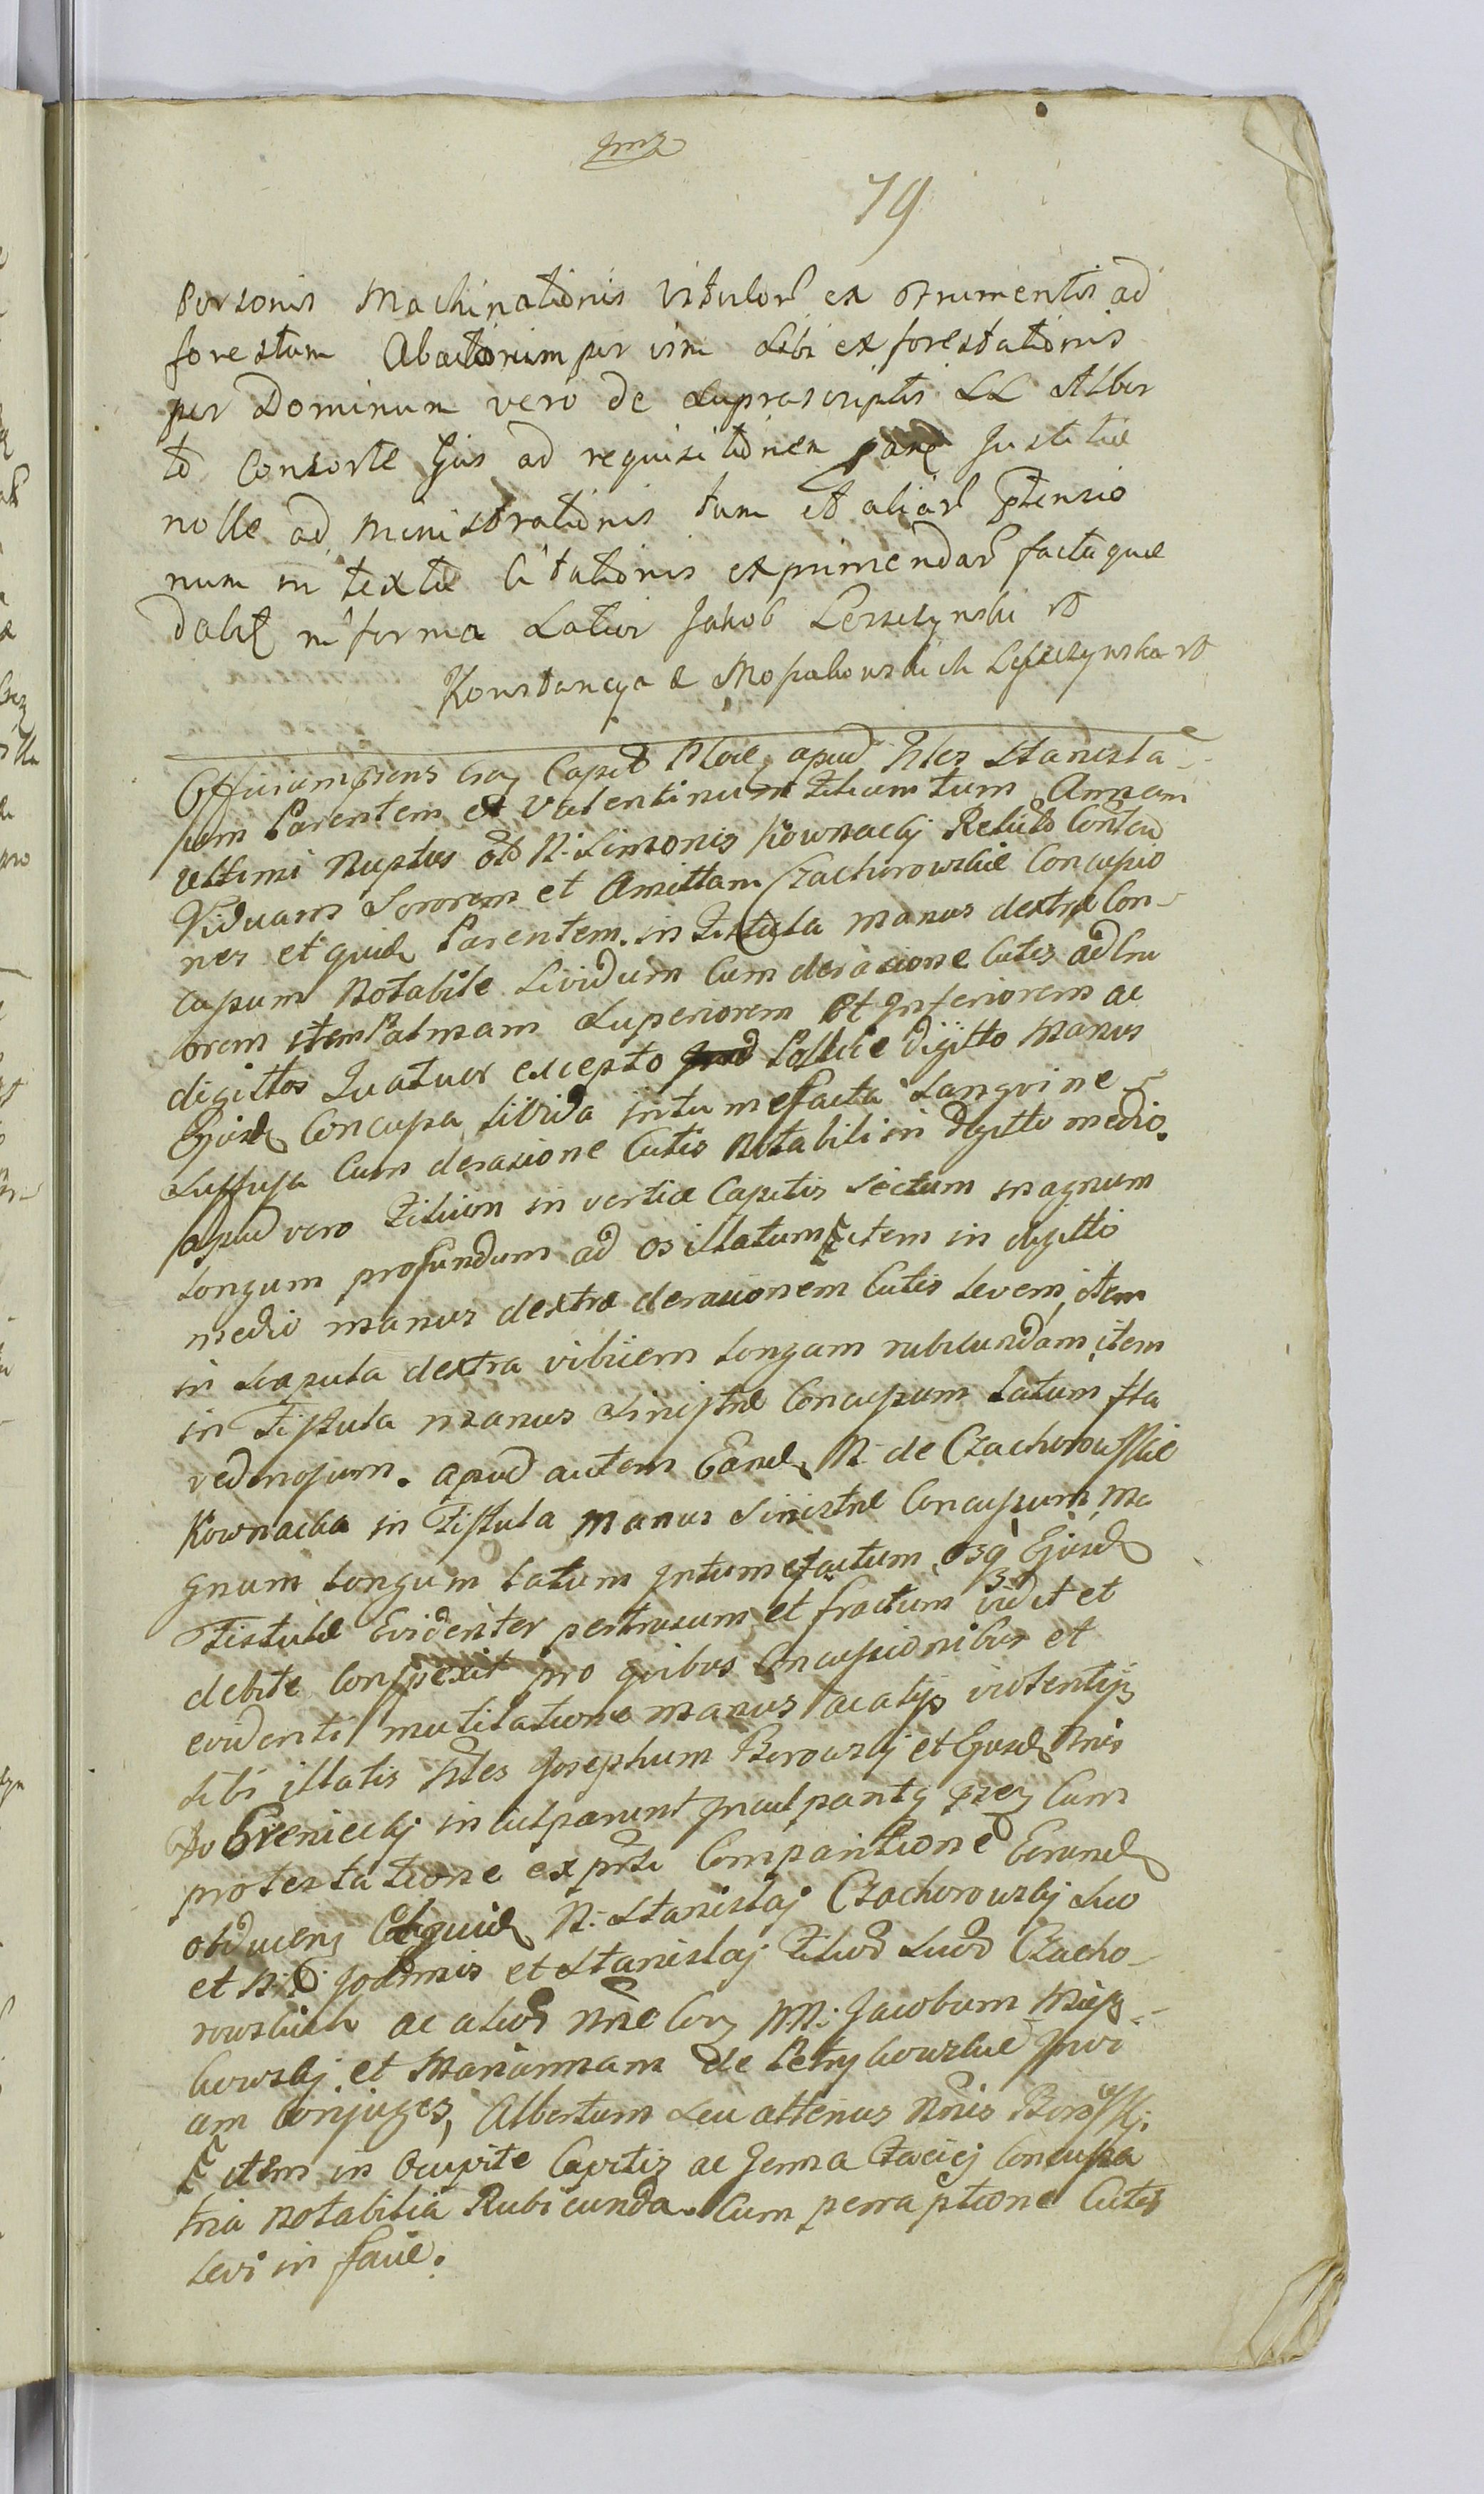 79
personis Machinationis Vitulor ex strumentis ad
forestum Abactionim per vim sibi exforestationis
per Dominum vero de suprascriptis LL Alber
to Consorte Ejus ad requisitionem Justitiæ
nolle ad Ministrationis tum et aliar ptensio
num in textu Citationis exprimendar facta quæ
dabit in forma Latior Jakob Leszczynski
Konstancya z Leszczynska
Officium psens Capit apud Nles Stanisla
um Parentem et Valentinum Filium tum Annam
ultimi Nuptus olt N. Simonis Kownackj Relict
Viduam Sororem et Amittam Czachorowskie Concusio
nes et quid Parentem in Fistula manus dextræ Con-
cusum Notabile Lividum Cum derasione Cutis ad Cru
orem item Palmam Superiorem et Inferiorem ac
digittos Quatuor excepto Pollice Digitto Manus
Ejusd Concusa Livida intumefacta Sanguine
Suffusa Cum derasione Cutis Notabili in digitto medio.
apud vero Filium in vertice Capitis Sectum magnum
Longum profundum ad os illatum item in digitto
medio manus dextræ derasionem Cutis Levem, item
in Scapula dextra vibicem Longam rubicundam, item
in Fistula manus Sinistræ Concusum Latum fla
vedinosum. apud autem Eand N. de Czachorowskie
Kownacka in Fistula Manus Sinistræ Concusum ma
gnum Longum Latum Intumefactum osq Ejusd
Fistulæ Evidenter pertrusum et fractum vidit et
debite Conspexit pro quibus Concussionibus et
evidenti mutilatione manus ac alijs violentijs
sibi illatis Nles Josephum Borowskj et Ejusd Nnis
inculparunt Inculpantq Cum
protestatione ex pte Comparitione Eorund
obducens N. Stanislaj Czachorowskj Suo
et Joannis et Stanislaj Filior Suor Czacho-
rowskich ac alior Nne NN. Jacobum
kowskj et Mariannam de Petrykowskie Invi
am Conjuges, Albertum Seu alterius Nnis
item in Ocupite Capitis ac Gemra Concussa
tria Notabilia Rubicunda. Cum perraptione Cutis
Levi in facie.